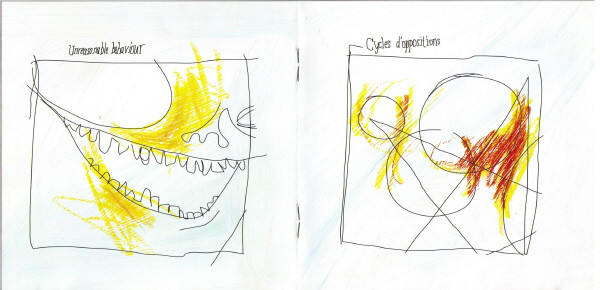 Unreasonable behaviour
Cycles d'oppositions